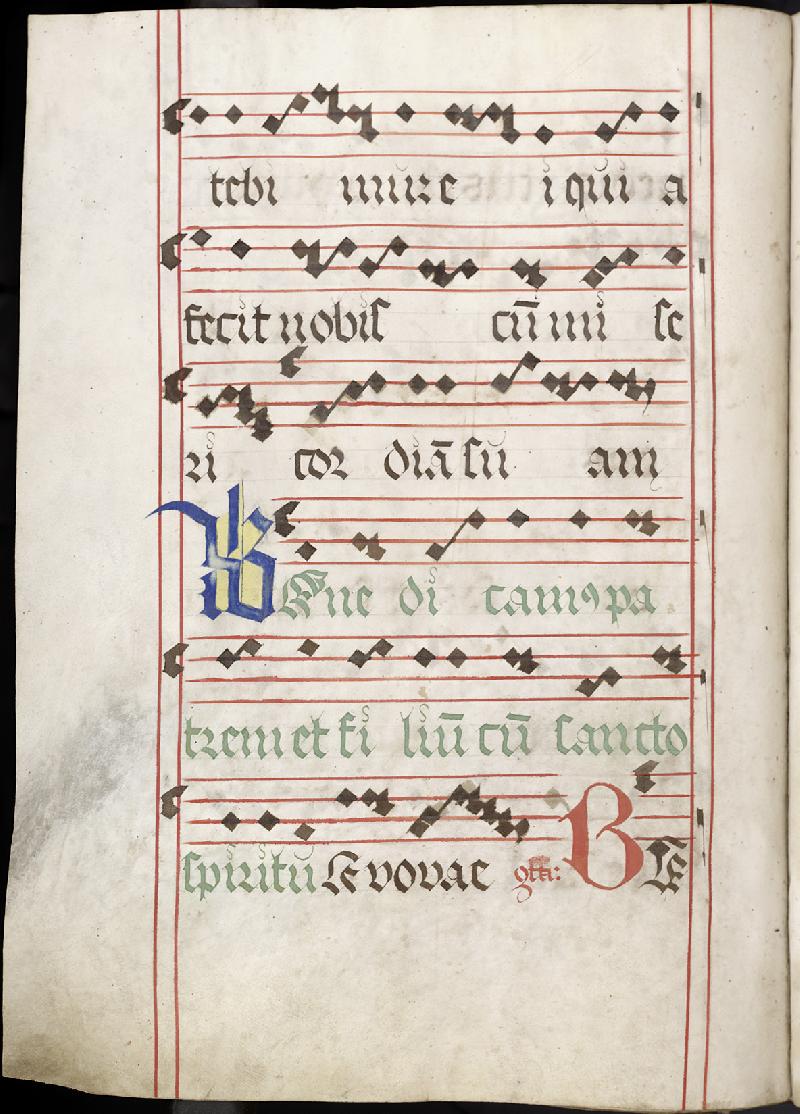 tebi mur e i qui a
fecit nobis cū mi se
ri cor diā su am
BEne di camꝰ pa
trem et fi liū cū sancto
spiritū Evovae gr̄a: BE